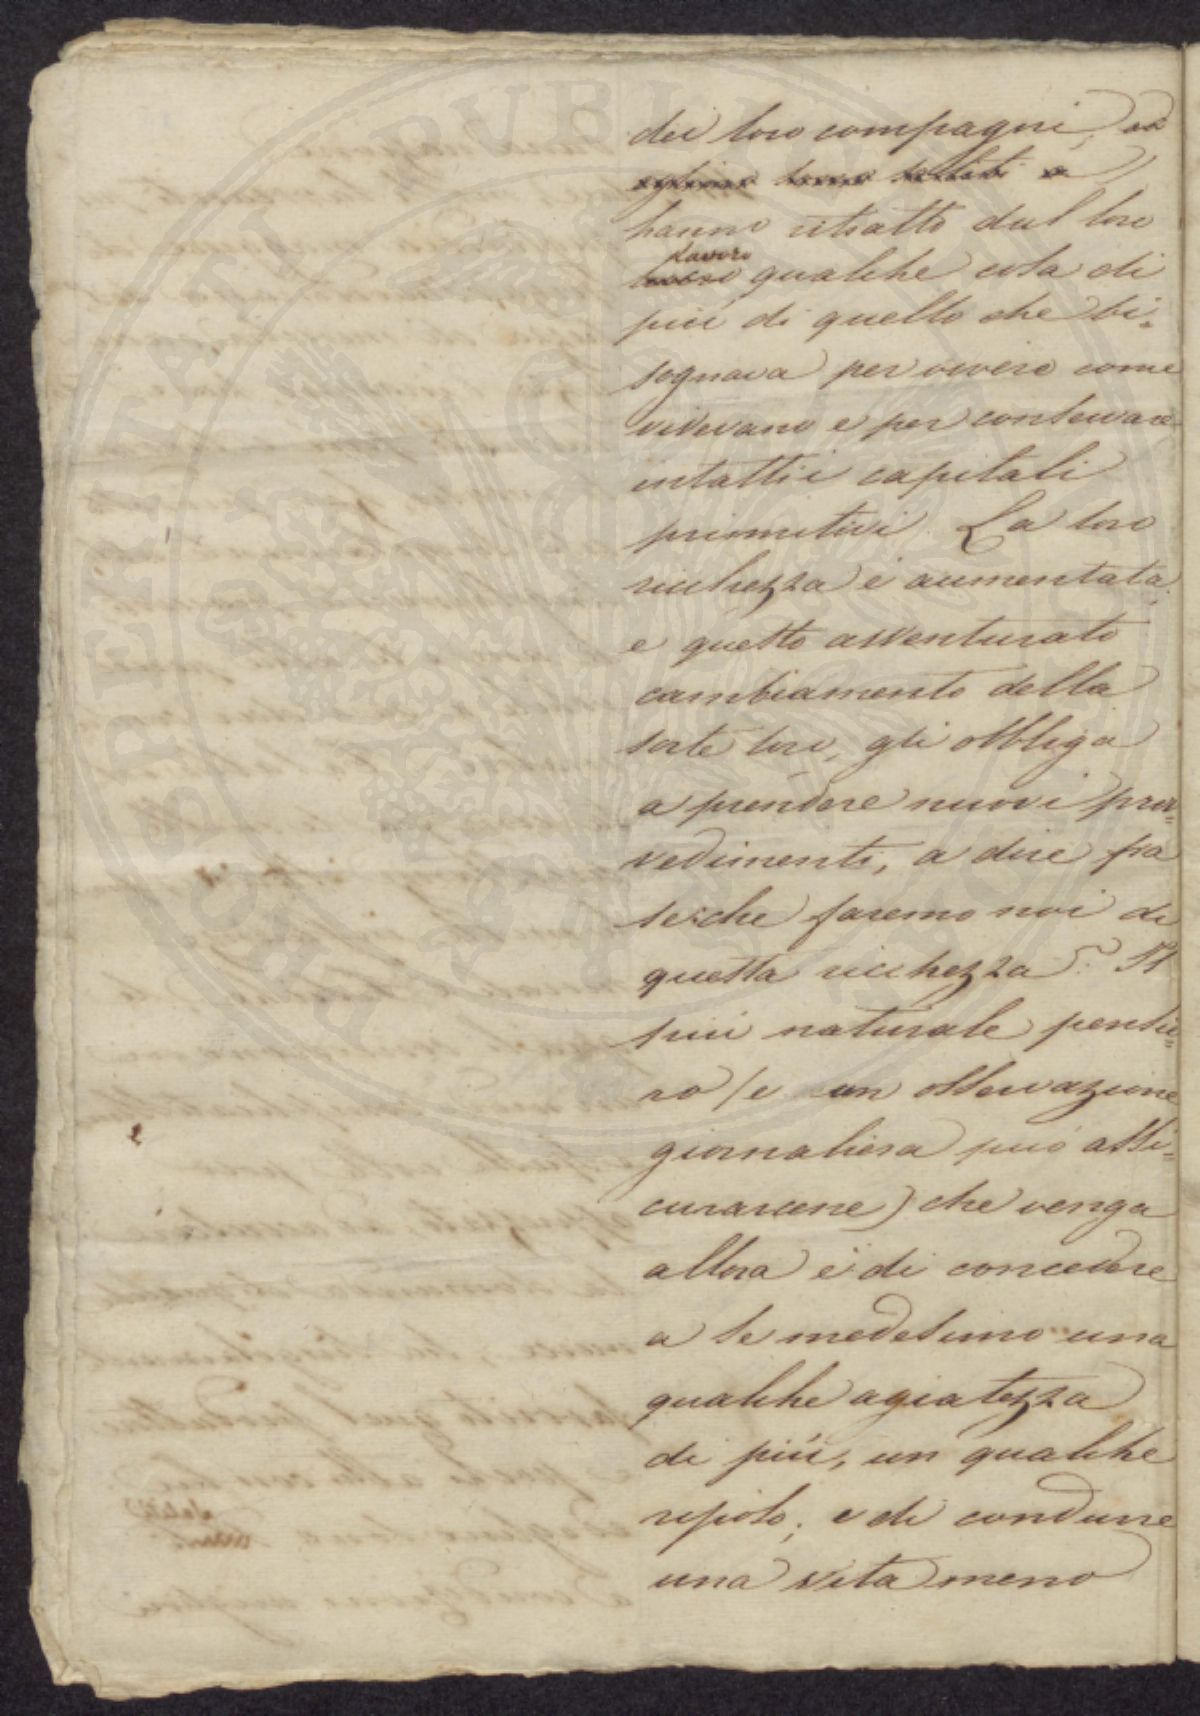 dei loro compagni, ed
hanno ritratto dal loro
lavoro
qualche cosa di
più di quello che bi=
sognava per vivere come
vivevano e per conservare
intatti i capitali
primitivi. La loro
ricchezza è aumentata,
e questo avventurato
cambiamento della
sorte loro, gli obbliga
a prendere nuovi prov=
vedimenti, a dire fra
se: che faremo noi di
questa ricchezza? Il
più naturale pensie=
ro (e un osservazione
giornaliera può assi=
curarcene) che venga
allora è di concedere
a se medesimo una
qualche agiatezza
di più, un qualche
riposo; e di condurre
una vita meno